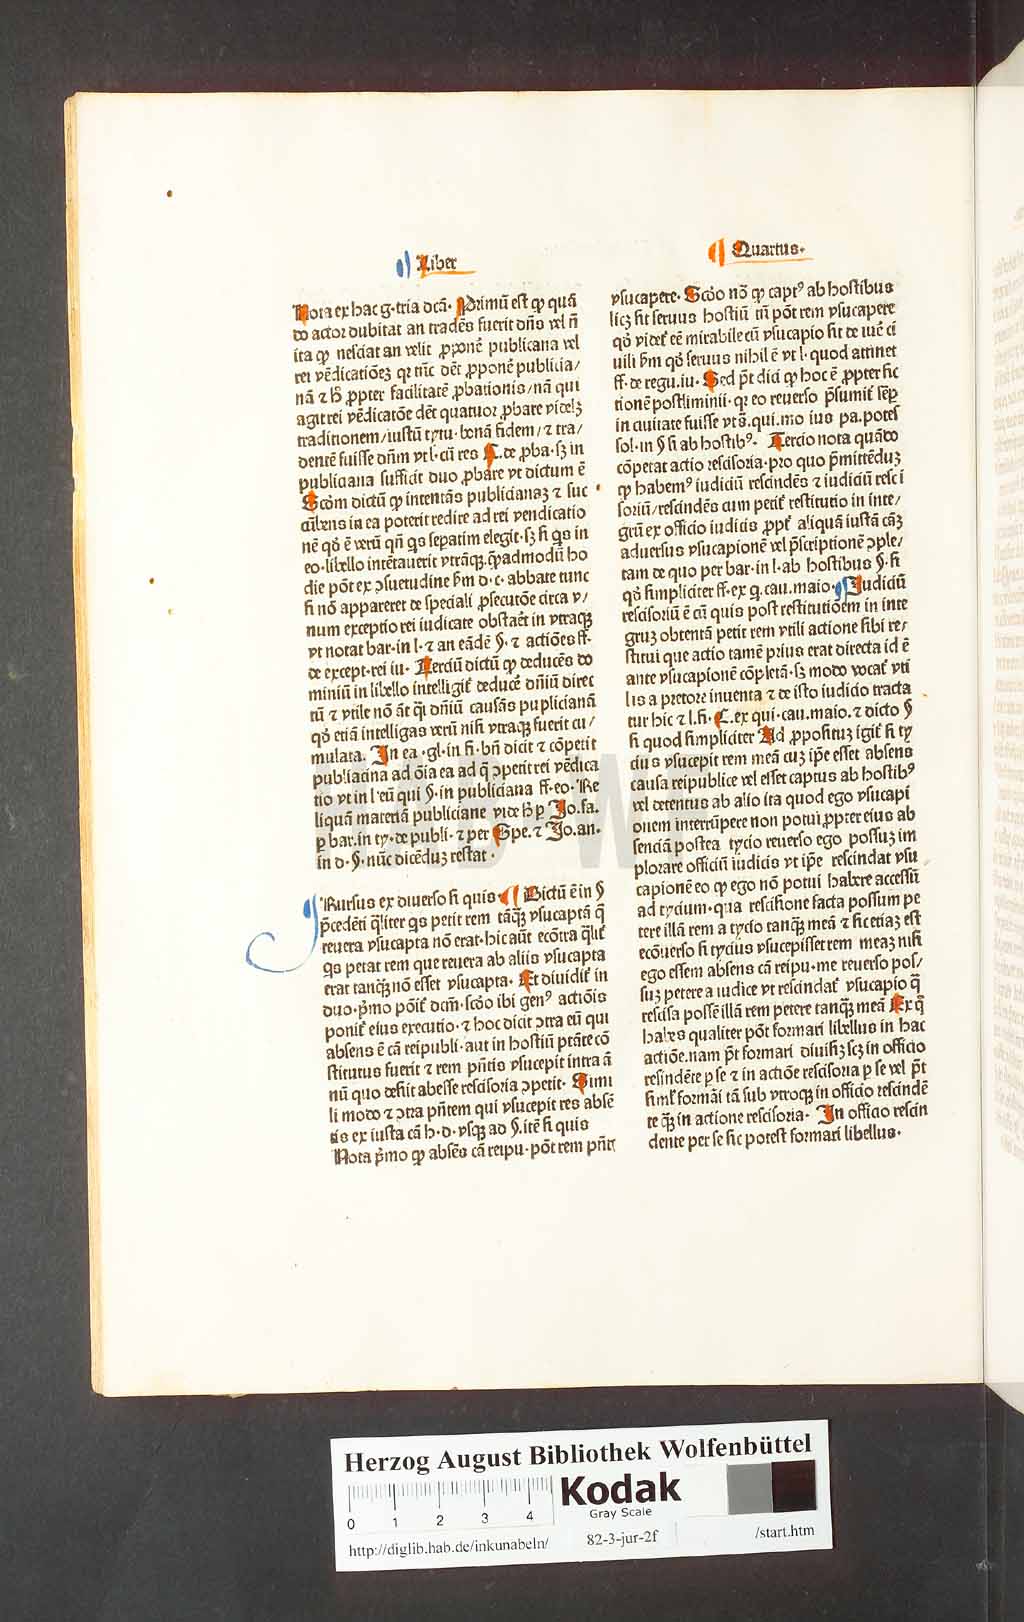 Liber
Quartus·
Nota ex hac g·tria dcā· Primū est ꝙ quā
do actor dubitat an tradēs fuerit dn̄s vel n̄
ita ꝙ nesciat an velit ꝓponē publicana vel
rei vēdicatiōeꝫ qꝛ tūc dēt ꝓponē publicia/
nā ⁊ ꝓpter facilitatē ꝓbationis/nā qui
agit rei vēdicatōe dēt quatuor ꝓbare videlꝫ
traditionem/iustū tytu·bonā fidem/⁊ tra/
dentē fuisse dn̄m vt l·cū res C·de ꝓba·sꝫ in
publiciana sufficit duo ꝓbare vt dictum ē
Scōm dictū ꝙ intentās publicianaꝫ ⁊ suc
cūbens in ea poterit redire ad rei vendicatio
nē qd̓ ē verū qn̄ qs sepatim elegit·sꝫ si qs in
eo·libello intētauerit vtrāqꝫ·qēadmodū ho
die pōt ex ꝯsuetudine ẜm d·c·abbate tunc
si nō appareret de speciali ꝓsecutōe circa v/
num exceptio rei iudicate obstaēt in vtraqꝫ
vt notat bar·in l·⁊ an eādē §·⁊ actiōes ff·
de except·rei iu· Terciū dictū ꝙ deducēs do
miniū in libello intelligit᷑ deducē dn̄iū direc
tū ⁊ vtile nō āt qi dn̄iū causās puplicianā
qd̓ etiā intelligas verū nisi vtraqꝫ fuerit cu/
mulata· In ea·gl·in fi·bn̄ dicit ⁊ cōpetit
publiciana ad ōia ea ad q̄ ꝯpetit rei vēdica
tio vt in l·eū qui §·in publiciana ff·eo·Re
liquā materiā publiciane vide Jo·fa·
ꝑ bar·in ty·de publi·⁊ per Spe·⁊ Jo·an·
in d·§·nūc dicēduꝫ restat·
Rursus ex diuerso si quis· Dictū ē in §
p̄cedēti qliter qs petit rem tāqꝫ vsucaptā q̄
reuera vsucapta nō erat·hic aūt ecōtra qlit᷑
qs petat rem que reuera ab aliis vsucapta
erat tanqꝫ nō esset vsucapta· Et diuidit᷑ in
duo·p̓mo pōit᷑ dcm̄·scd̓o ibi genꝰ actiōis
ponit᷑ eius executio·⁊ hoc dicit ꝯtra eū qui
absens ē cā reipubli·aut in hostiū ptāte cō
stitutus fuerit ⁊ rem pn̄tis vsucepit intra ā
nū quo desiit abesse rescisoria ꝯpetit· Simi
li modo ⁊ ꝯtra pn̄tem qui vsucepit res absē
tis ex iusta cā h·d·vsqꝫ ad §·itē si quis
Nota p̓mo ꝙ absēs cā reipu·pōt rem pn̄t
vsucapere· Scd̓o nō ꝙ captꝰ ab hostibus
licꝫ sit seruus hostiū tn̄ pōt rem vsucapere
qd̓ videt᷑ eē mirabile cū vsucapio sit de iuē ci
uili ẜm qd̓ seruus nihil ē vt l·quod attinet
ff·de regu·iu· Sed p̄t dici ꝙ hoc ē ꝓpter fic
tionē postliminii·qꝛ eo reuerso p̄sumit᷑ sēp
in ciuitate fuisse vt s̄·qui·mo ius pa·potes
sol·in § si ab hostibꝰ· Tercio nota quādo
cōpetat actio rescisoria·pro quo p̄mittēduꝫ
ꝙ habemꝰ iudiciū rescindēs ⁊ iudiciū resci
soriū/rescindēs cum petit᷑ restitutio in inte/
grū ex officio iudicis ꝓpt᷑ aliquā iustā cāꝫ
aduersus vsucapionē vel p̄scriptionē ꝯple/
tam de quo per bar·in l·ab hostibus §·si
qd̓ simpliciter ff·ex q·cau·maio· Iudiciū
rescisoriū ē cū quis post restitutiōem in inte
gruꝫ obtentā petit rem vtili actione sibi re/
stitui que actio tamē prius erat directa id ē
ante vsucapionē cōpletā·sꝫ modo vocat᷑ vti
lis a pretore inuenta ⁊ de isto iudicio tracta
tur hic ⁊ l·fi· C·ex qui·cau·maio·⁊ dicto §
si quod simpliciter Ad ꝓpositū igit᷑ si ty
cius vsucepit rem meā cuꝫ ip̄e esset absens
causa reipublice vel esset captus ab hostibꝰ
vel detentus ab alio ita quod ego vsucapi
onem interrūpere non potui ꝓpter eius ab
senciā postea tycio reuerso ego possuꝫ im
plorare officiū iudicis vt ip̄e rescindat vsu
capionē eo ꝙ ego nō potui habere accessū
ad tycium·qua rescisione facta possum pe
tere illā rem a tycio tanqꝫ meā ⁊ sic etiaꝫ est
ecōuerso si tycius vsucepisset rem meaꝫ nisi
ego essem absens cā reipu·me reuerso pos/
suꝫ petere a iudice vt rescindat᷑ vsucapio q̄
rescisa possē illā rem petere tanqꝫ meā Ex q̄
habes qualiter pōt formari libellus in hac
actiōe·nam p̄t formari diuisiꝫ scꝫ in officio
resindēte ꝑ se ⁊ in actiōe rescisoria ꝑ se vel p̄t
siml᷑ formāi tā sub vtroqꝫ in officio rescindē
te qꝫ in actione rescisoria· In officio rescin
dente per se sic potest formari libellus·
HAB WF
Herzog August Bibliothek Wolfenbüttel
0 1 2 3 4
Kodak
Gray Scale
http://diglib.hab.de/inkunabeln/
82-3-jur-2f
/start.htm